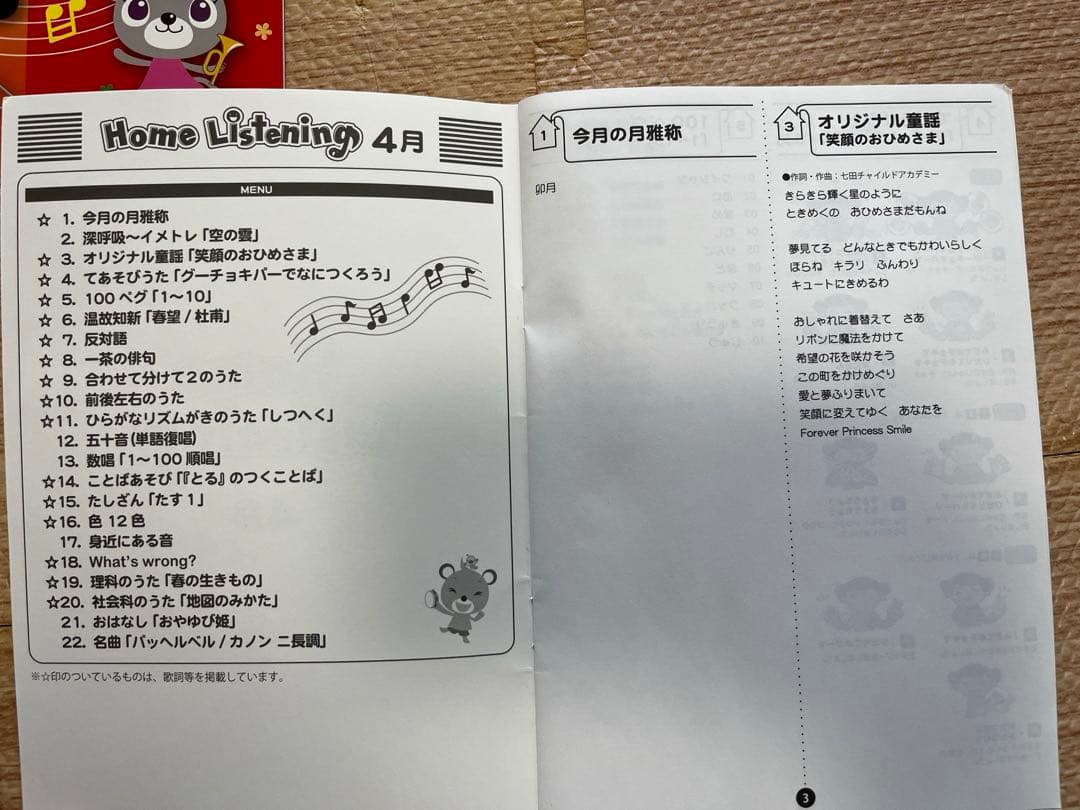 Home Listening 4月
MENU
☆ 1. 今月の月雅称
2. 深呼吸～イメトレ「空の雲」
☆ 3. オリジナル童謡「笑顔のおひめさま」
☆ 4. てあそびうた「グーチョキパーでなにつくろう」
☆ 5. 100ペグ「1～10」
☆ 6. 温故知新「春望/杜甫」
☆ 7. 反対語
☆ 8. 一茶の俳句
☆ 9. 合わせて分けて2のうた
☆10. 前後左右のうた
☆11. ひらがなリズムがきのうた「しつへく」
12. 五十音(単語復唱)
13. 数唱「1～100順唱」
☆14. ことばあそび「『とる』のつくことば」
☆15. たしざん「たす1」
☆16. 色 12色
17. 身近にある音
☆18. What's wrong?
☆19. 理科のうた「春の生きもの」
☆20. 社会科のうた「地図のみかた」
21. おはなし「おやゆび姫」
22. 名曲「パッヘルベル/カノン ニ長調」
※☆印のついているものは、歌詞等を掲載しています。
1 今月の月雅称
卯月
3 オリジナル童謡
「笑顔のおひめさま」
●作詞・作曲:七田チャイルドアカデミー
きらきら輝く星のように
ときめくの おひめさまだもんね
夢見てる どんなときでもかわいらしく
ほらね キラリ ふんわり
キュートにきめるわ
おしゃれに着替えて さあ
リボンに魔法をかけて
希望の花を咲かそう
この町をかけめぐり
愛と夢ふりまいて
笑顔に変えてゆく あなたを
Forever Princess Smile
3